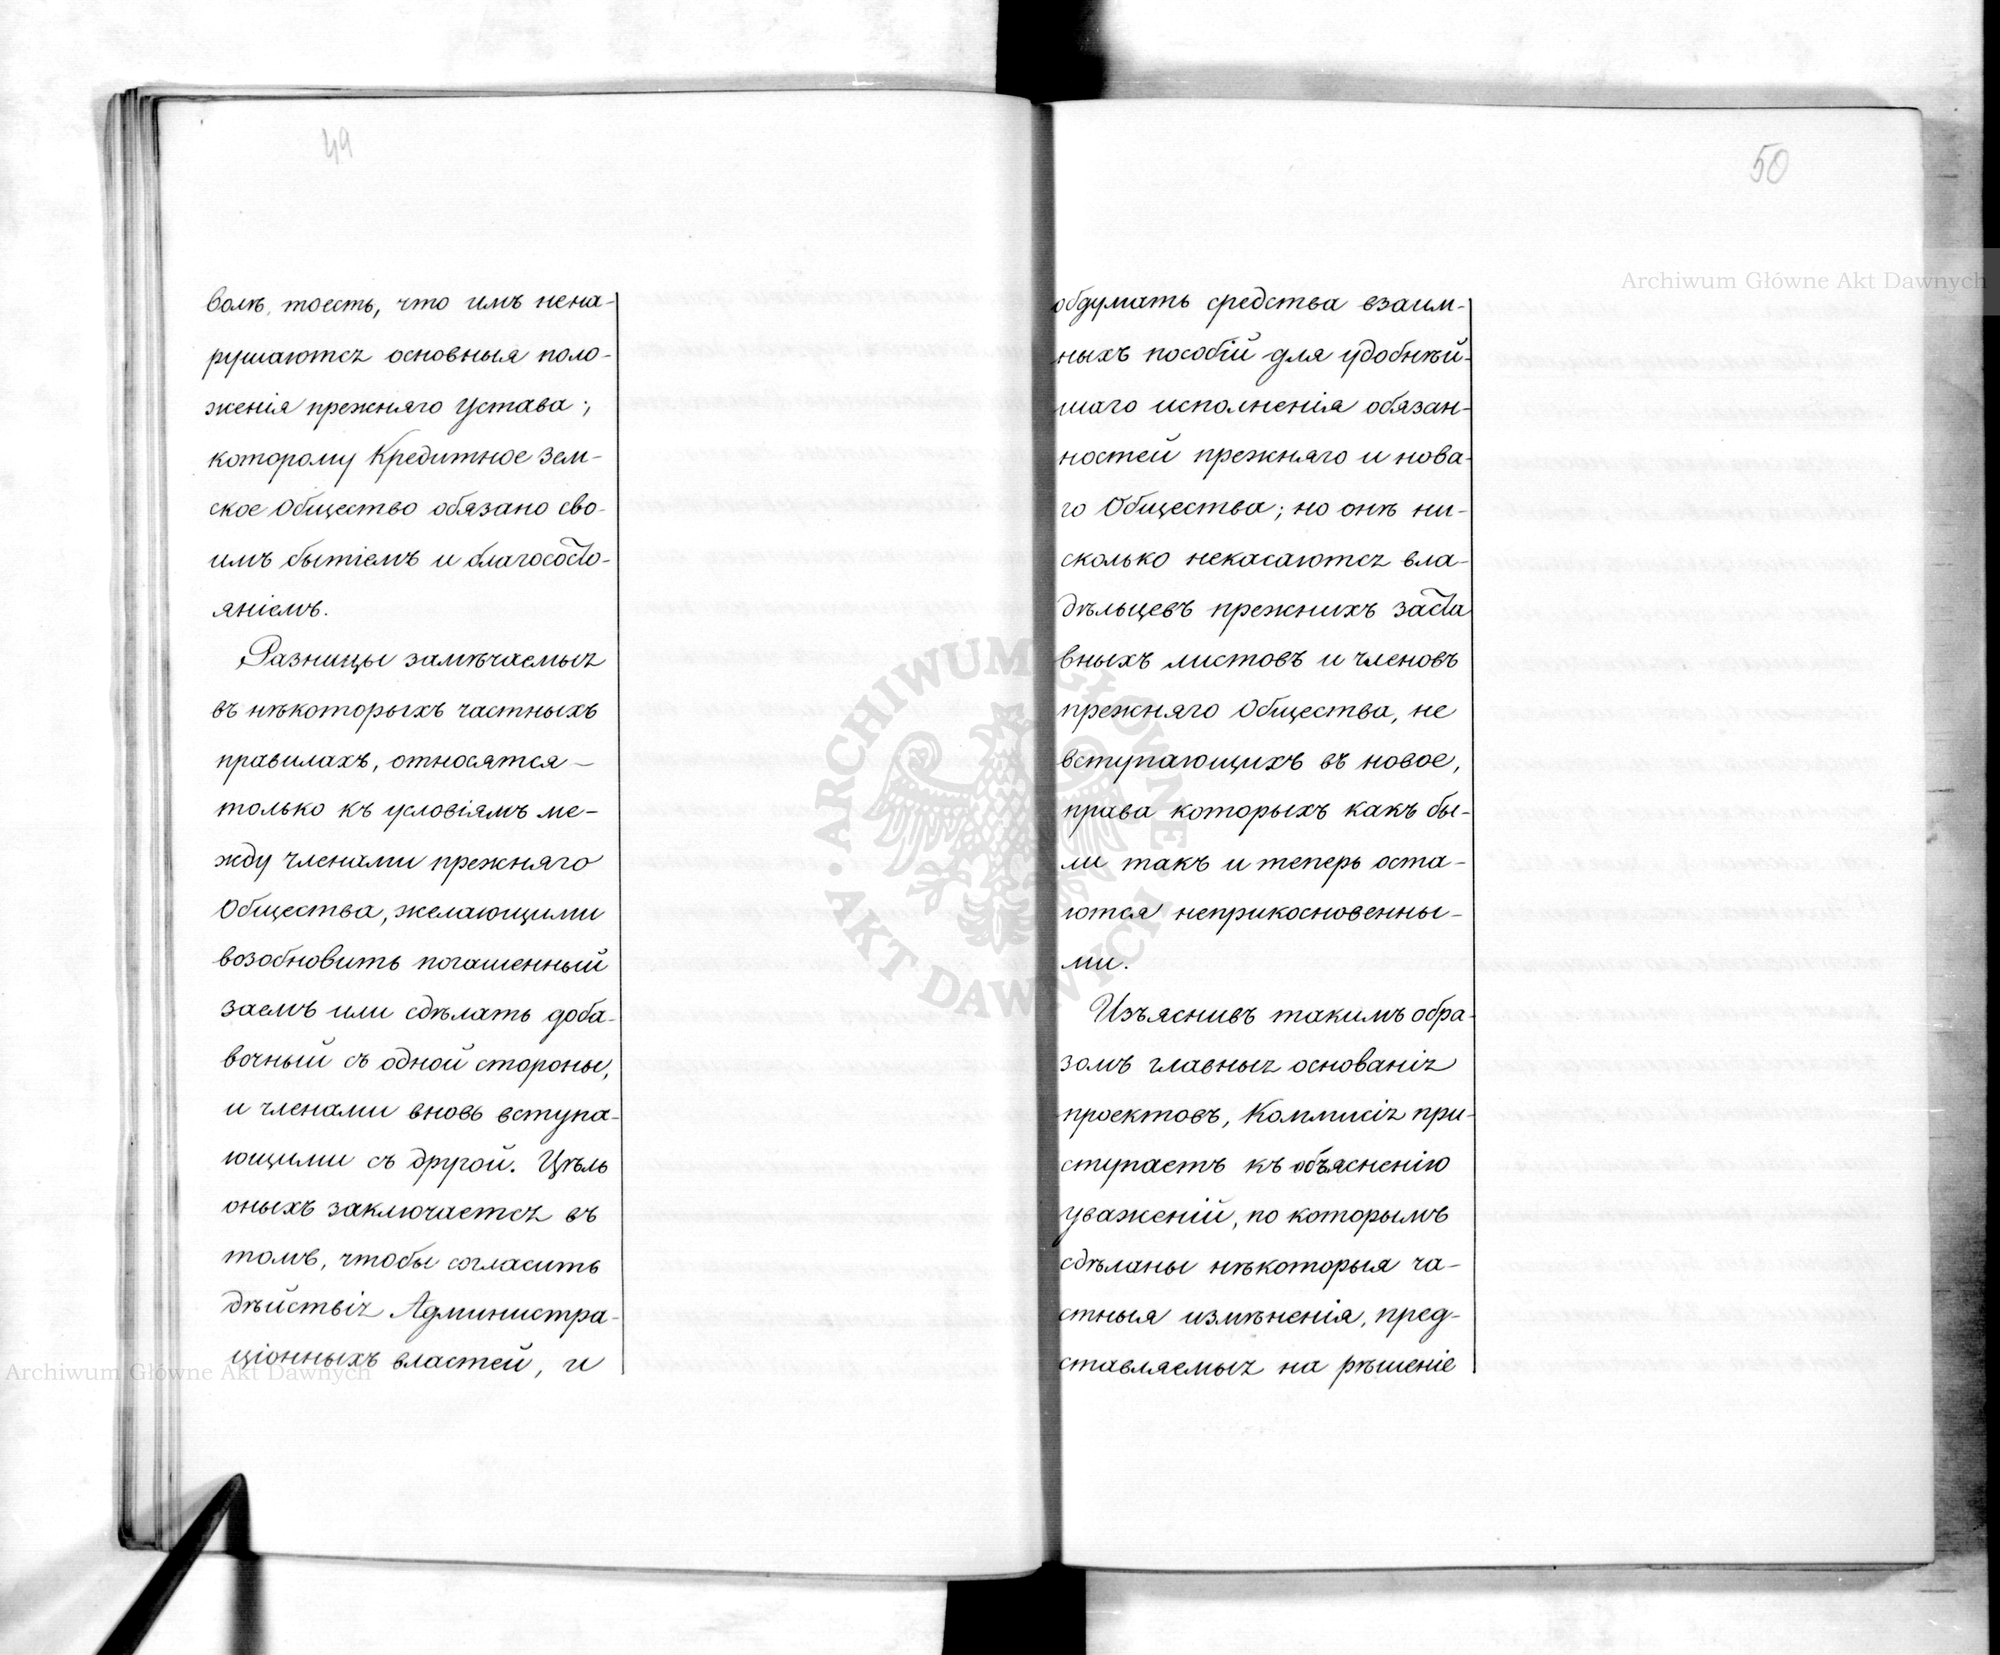 49
волѣ, тоесть, что имъ нена-
рушаются основныя поло-
женія прежняго Устава;
которому Кредитное Зем-
ское Общество обязано сво-
имъ бытіемъ и благососто-
яніемъ.
Разницы замѣчаемыя
въ нѣкоторыхъ частныхъ
правилахъ, относятся —
только къ условіямъ ме-
жду членами прежняго
Общества, желающими
возобновить погашенный
заемъ или сдѣлать доба-
вочный съ одной стороны,
и членами вновь вступа-
ющими съ другой. Цѣль
оныхъ заключается въ
томъ, чтобы согласить
дѣйствія Администра-
ціонныхъ властей, и
50
обдумать средства взаим-
ныхъ пособій для удобнѣй-
шаго исполненія обязан-
ностей прежняго и нова-
го Общества; но онѣ ни-
сколько некасаются вла-
дѣльцевъ прежнихъ заста
вныхъ листовъ и членовъ
прежняго Общества, не
вступающихъ въ новое,
права которыхъ какъ бы-
ли такъ и теперь оста-
ются неприкосновенны-
ми.
Изъяснивъ такимъ обра-
зомъ главныя основанія
проектовъ, Коммисія при-
ступаетъ къ объясненію
уваженій, по которымъ
сдѣланы нѣкоторыя ча-
стныя измѣненія, пред-
ставляемыя на рѣшеніе
Archiwum Główne Akt Dawnych
Archiwum Główne Akt Dawnych
ARCHIWUM GŁÓWNE AKT DAWNYCH